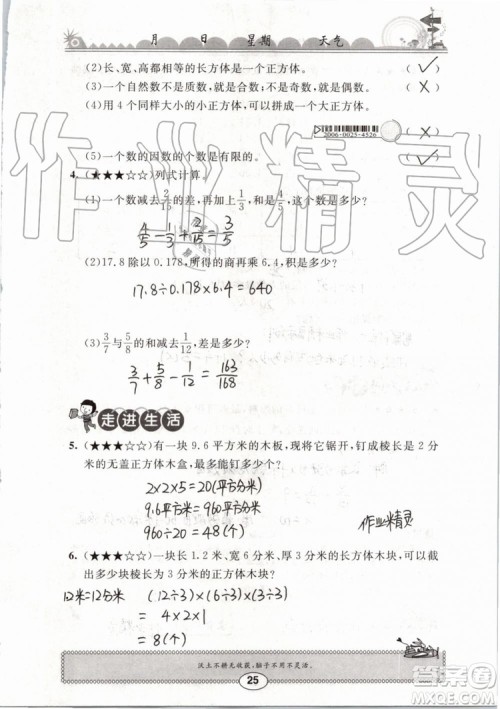 月 日 星期 天气
(2)长、宽、高都相等的长方体是一个正方体。 (✓)
(3)一个自然数不是质数,就是合数;不是奇数,就是偶数。 (×)
(4)用 4 个同样大小的小正方体,可以拼成一个大正方体。
(×)
2006-0025-4526
(5)一个数的因数的个数是有限的。 (✓)
4. (★★★☆☆)列式计算。
(1)一个数减去2/15的差,再加上1/3,和是4/5,这个数是多少?
4/5-1/3+2/15=3/5
(2)17.8 除以 0.178,所得的商再乘 6.4,积是多少?
17.8÷0.178×6.4=640
(3)3/7与5/8的和减去1/12,差是多少?
3/7+5/8-1/12=163/168
走进生活
5. (★★★☆☆)有一块 9.6 平方米的木板,现将它锯开,钉成棱长是 2 分
米的无盖正方体木盒,最多能钉多少个?
2×2×5=20(平方分米)
9.6平方米=960平方分米
960÷20=48(个)
作业精灵
6. (★★★☆☆)一块长 1.2 米、宽 6 分米、厚 3 分米的长方体木块,可以截
出多少块棱长为 3 分米的正方体木块?
1.2米=12分米 (12÷3)×(6÷3)×(3÷3)
=4×2×1
=8(个)
沃土不耕无收获,脑子不用不灵活。
25
作业精灵
答案圈